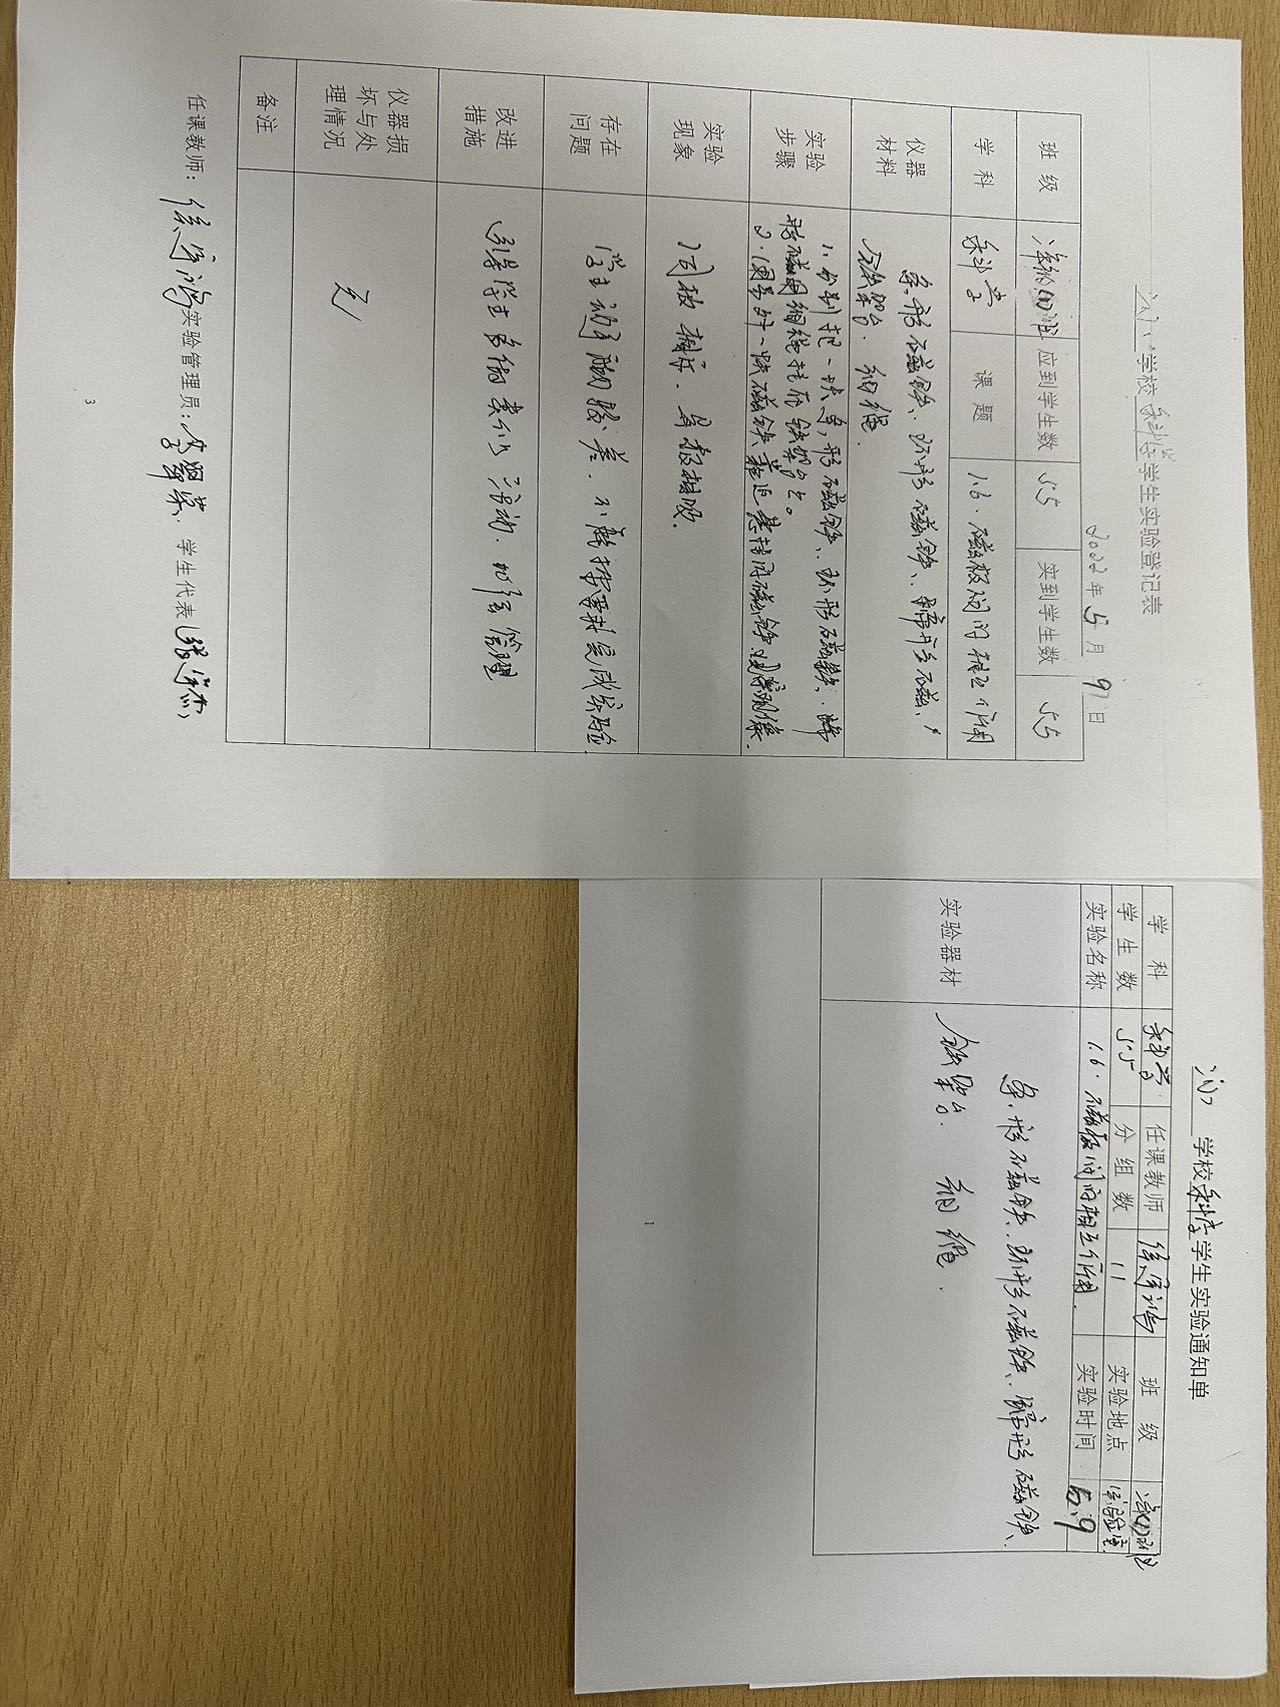 学校科学学生实验登记表
2022年5月9日
班级 应到学生数 55 实到学生数 55
学科 科学 课题 1.6.磁极间的相互作用
仪器材料 条形磁铁、环形磁铁、蹄形磁铁、
铁架台、细绳.
实验步骤 1.分别把一块条形磁铁、环形磁铁、蹄
形磁铁用细绳挂在铁架台上。
2.用另外一块磁铁靠近悬挂的磁铁,观察现象.
实验现象 同极相斥、异极相吸.
存在问题 学生动手能力较差,不能按要求完成实验
改进措施 引导学生多做类似活动,加强管理
仪器损坏与处理情况 无
备注
任课教师: 实验管理员: 学生代表
3
学校科学学生实验通知单
学科 科学 任课教师 班级
学生数 55 分组数 11 实验地点 实验室
实验名称 1.6.磁极间的相互作用. 实验时间 5.9
实验器材 条形磁铁、环形磁铁、蹄形磁铁、
铁架台、细绳.
1